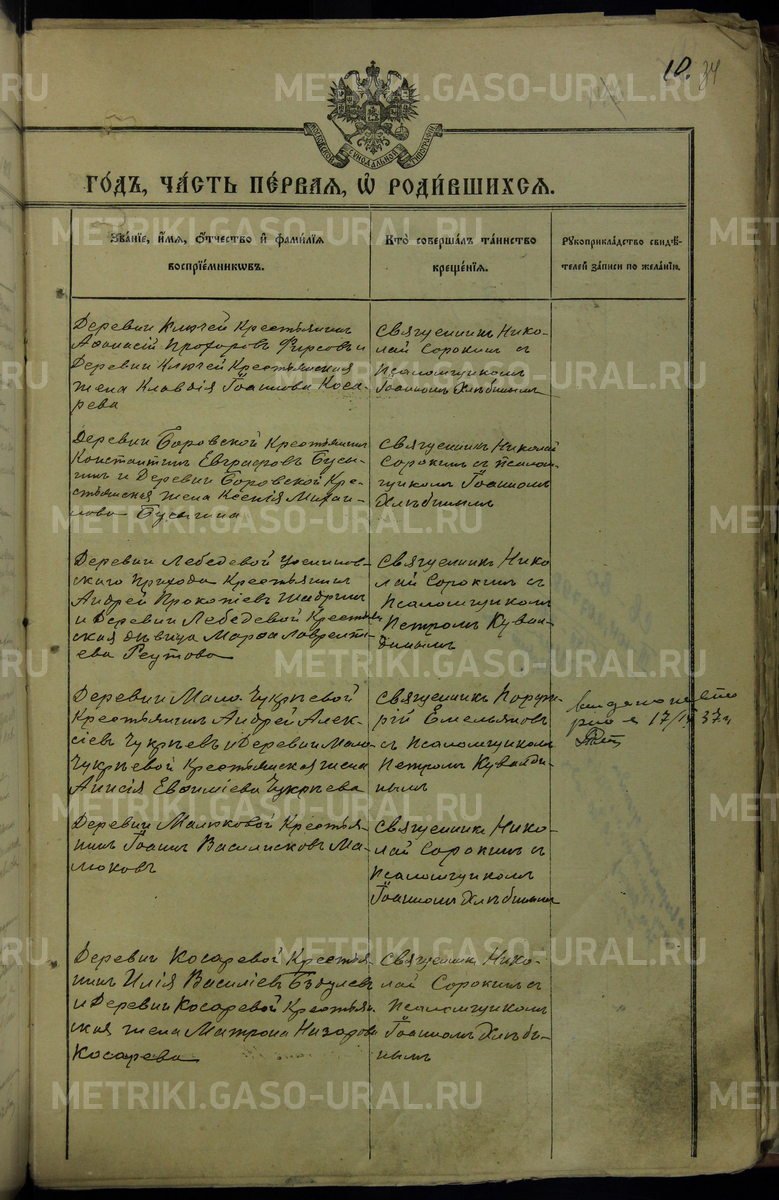 10. 34
МОСКОВСКОЙ СѴНОДАЛЬНОЙ ТИПОГРАФІИ
ГО́ДЪ, ЧА́СТЬ ПЕ́РВАЯ, Ѡ҆ РОДИ́ВШИХСЯ.
Зва́нїе, и҆́мя, ѻ҆́тчество и҆ фами́лїя
воспрїе́мниковъ.
Кто̀ соверша́лъ та́инство
креще́нїя.
Рꙋкоприкла́дство свидѣ́-
телей за́писи по жела́нїю.
Деревни Ключей Крестьянинъ
Аѳанасій Прохоровъ Фирсовъ и
Деревни Ключей Крестьянская
жена Клавдія Іоаннова Коса-
рева
Священникъ Нико-
лай Сорокинъ съ
Псаломщикомъ
Іоанномъ Хлѣбинымъ
Деревни Боровской Крестьянинъ
Константинъ Евграфовъ Бусы-
гинъ и Деревни Боровской Кре-
стьянская жена Ксенія Михаи-
лова Бусыгина
Священникъ Николай
Сорокинъ съ Псалом-
щикомъ Іоанномъ
Хлѣбинымъ
Деревни Лебедевой
скаго прихода Крестьянинъ
Андрей Прокопіевъ Шабринъ
и Деревни Лебедевой Крестьян-
ская дѣвица Марѳа Лаврентi-
ева Реутова
Священникъ Нико-
лай Сорокинъ съ
Псаломщикомъ
Петромъ Кувал-
динымъ
Деревни Мало Чукрѣевой
Крестьянинъ Андрей Алек-
сіевъ Чукрѣевъ и Деревни Мало
Чукрѣевой Крестьянская жена
Анисія Евѳиміева Чукрѣева
Священникъ Порфи-
рій Емельяновъ
съ Псаломщикомъ
Петромъ Кувалди-
нымъ
17/IV 37 г
Деревни Малюковой Крестья-
нинъ Іоаннъ Василисковъ Ма-
люковъ
Священникъ Нико-
лай Сорокинъ съ
Псаломщикомъ
Іоанномъ Хлѣбинымъ
Деревни Косаревой Крестья-
нинъ Илія Василіевъ
и Деревни Косаревой Крестьян-
ская жена Матрона Назарова
Косарева
Священникъ Нико-
лай Сорокинъ съ
Псаломщикомъ
Іоанномъ Хлѣби-
нымъ
METRIKI.GASO-URAL.RU